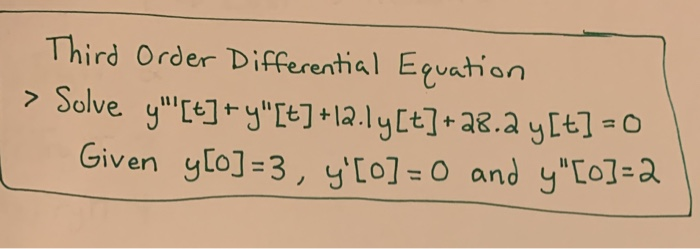 Third Order Differential Equation
> Solve y'''[t]+y"[t]+12.1y[t]+28.2 y[t]=0
Given y[0]=3, y'[0]=0 and y"[0]=2